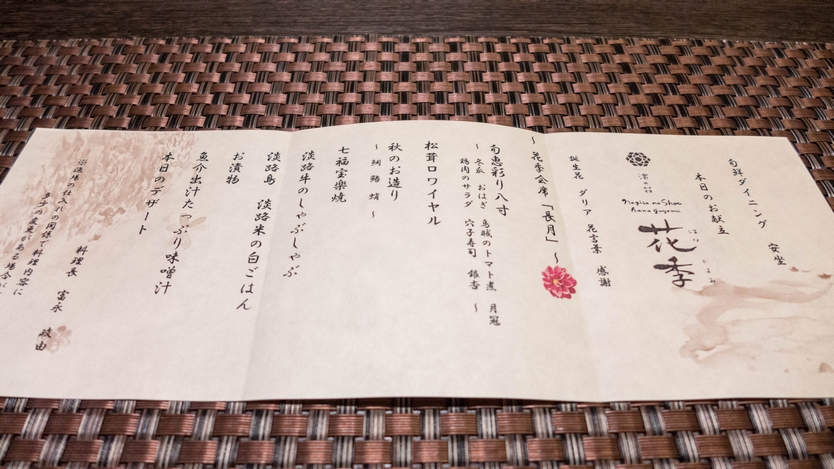 旬鮮ダイニング 安坐
本日のお献立
渚の荘
Nagisa no Shou
Hana goyomi
花季
はなごよみ
誕生花 ダリア 花言葉 感謝
~ 花季会席「長月」 ~
旬恵彩り八寸
~ 冬瓜 おはぎ 烏賊のトマト煮 月冠
鶏肉のサラダ 穴子寿司 銀杏 ~
松茸ロワイヤル
秋のお造り
~ 鯛 鱸 蛸 ~
七福宝楽焼
淡路牛のしゃぶしゃぶ
淡路島 淡路米の白ごはん
お漬物
魚介出汁たっぷり味噌汁
本日のデザート
料理長 富永 政由
※漁場の仕入れの関係で料理内容に
多少の変更がある場合が